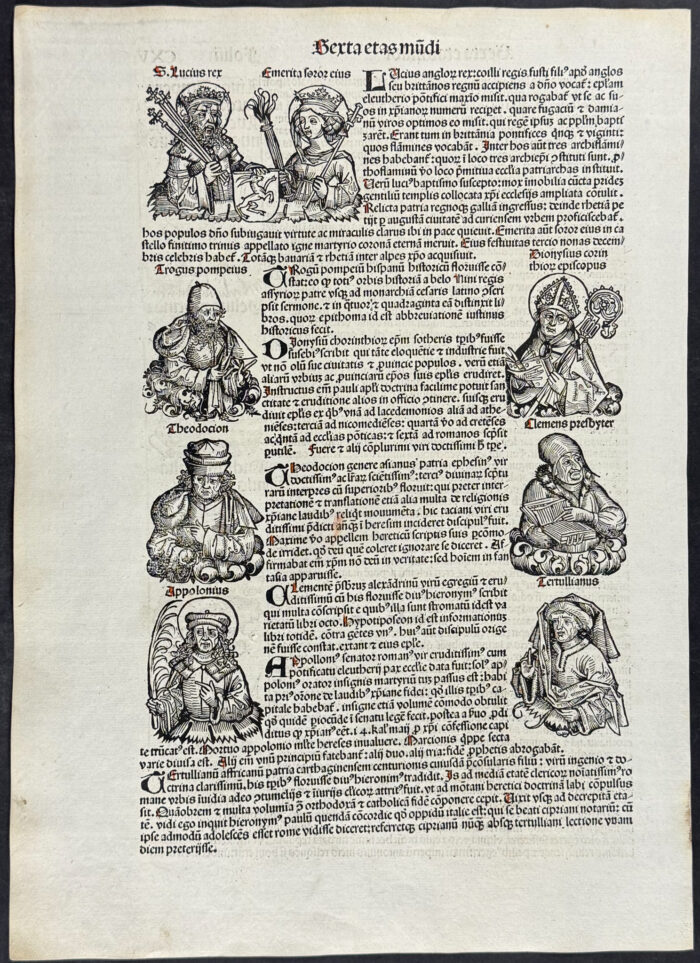 Sexta etas mūdi
S. Lucius rex
Emerita soror eius
LUcius anglorꝝ rex: coilli regis fusti filiꝰ apð anglos
seu brittanos regnū accipiens a dño vocatꝰ: eplam
eleutherio põtifici maxīo misit. qua rogabat vt se ac su-
os in xp̄ianorꝝ numerū reciperet. quare fugaciū et damia-
nū viros optimos eo misit. qui regē ipsuꝫ ac pplm bapti
zarēt. Erant tum in brittānia pontifices qnqꝫ et viginti:
quos flamines vocabāt. Inter hos aūt tres archiflami
nes habebant: quoꝝ ī loco tres archiepi ɔstituti sunt. ꝓ
thoflaminū ꝟo loco pmitiua ecclia patriarchas instituit.
Ueꝝ luciꝰ baptismo suscepto: mox imobilia cūcta pridez
gentilium templis collocata xpi ecclesijs ampliata cōtulit.
Relicta patria regnoqꝫ galliam ingressus: deinde rhetiā pe
tijt ꝑ augustā ciuitatē ad curiensem vrbem proficiscebat.
hos populos dño subiugauit virtute ac miraculis clarus ibi in pace quieuit. Emerita aūt soror eius in ca
stello finitimo trimis appellato igne martyrio coronā eternā meruit. Eius festiuitas tercio nonas decem-
bris celebris habeꝰ. Totāqꝫ bauariā et rhetiā inter alpes xpo acquisiuit.
Trogus pompeius
Dionysius corin
thior episcopus
TRogū pompeiū hispanū historicū floruisse cō-
stat: eo ꝙ totiꝰ orbis historiā a belo Nini regis
assyrioꝝ patre vsqꝫ ad monarchiā cesaris latino ɔscri
psit sermone. et in qtuorꝰ et quadraginta eā distinxit li-
bros. quoꝝ epithoma id est abbreuiationē iustinus
historicus fecit.
DIonysiū chorinthioꝝ epm sotheris tpibꝰ fuisse
eusebiꝰ scribit qui tāte eloquētie et industrie fuit
vt nō olū sue ciuitatis et ꝓuincie populos. verū etiā
aliarū vrbiuꝫ ac ꝓuinciarū epos suis eplis erudiret.
Instructus em pauli apli doctrina facilime potuit san
ctitate et eruditione alios in officio ɔtinere. suisqꝫ eru
diuit eplis ex qbꝰ vnā ad lacedemonios aliā ad athe-
niēses: terciā ad nicomediēses: quartā ꝟo ad cretēses
ac qntā ad ecclias pōticas: et sextā ad romanos scpsit
ꝑutilē. Fuere et alij cōplurimi viri doctissimi hꝰ tpe.
Theodocion
Clemens presbyter
THeodocion genere asianus patria ephesinꝰ vir
doctissimꝰ ac lrāꝝ sciētissimꝰ: terciꝰ diuinaꝝ scptu
rarū interpres cū superioribꝰ floruit: qui preter inter-
pretationē et translationē etiā alia multa de religionis
xpiane laudibꝰ reliqt monumēta. hic taciani viri eru
ditissimi pdicti anqꝫ ī heresim incideret discipulꝰ fuit.
Maxime ꝟo appellem hereticū scriptis suis pcōmo-
de irridet. qꝫ deū quē coleret ignorare se diceret. Af-
firmabat em xpm nō deū in veritate: sed hoīem in fan
tasia apparuisse.
Appolonius
Tertullianus
CLementē psbrūꝫ alexādrinū virū egregiū et eru-
ditissimū cū his floruisse diuꝰ hieronymꝰ scribit
qui multa cōscripsit e quibꝰ illa sunt stromatū idest va
rietatū libri octo. Hypotiposeon id est informationis
libri totidē. cōtra gētes vnꝰ. huiꝰ aūt discipulū orige
nē fuisse constat. extant et eius eple.
APollonꝰ senator romanꝰ vir eruditissimꝰ cum
pontificatu eleutherij pax ecclie data fuit: solꝰ ap
polonꝰ orator insignis martyriū tūꝫ passus est: habi
ta priꝰ orōne de laudibꝰ xpiane fidei: qꝫ illis tpibꝰ ca-
pitale habebat. insigne etiā volumē cōmodo obtulit
qꝫ quidē pcioūde ī senatu legē fecit. postea a suo ꝓdi
ditus qꝫ xpianꝰ eēt. i4. kal'maij ꝓ xpi cōfessione capi
te trūcatꝰ est. Mortuo appolonio mlte hereses inualuere. Marcionis qppe secta
varie diuisa est. Alij em vnū principiū fatebant: alij duo. alij tria: fidē ꝓphetis abrogabāt.
TErtullianū affricanū patria carthaginensem centurionis cuiusdā pcōsularis filiū: virū ingenio et do-
ctrina clarissimū. his tpibꝰ floruisse diuꝰ hieronimꝰ tradidit. Is ad mediā etatē clericoꝝ noīatissimꝰ ro-
mane vrbis īuidia adeo ɔtumelijs et iniurijs clicoꝝ attritꝰ fuit. vt ad mōtani heretici doctrinā labi cōpulsus
sit. Quāobrem et multa volumīa ɔ̄ orthodoxā et catholicā fidē cōponere cepit. Uixit vsqꝫ ad decrepitā eta-
tē. vidi ego inquit hieronymꝰ paulū quendā cōcordie qꝫ oppidū italie est: qui se beati cipriani notariū: cū
ipse admodū adolescēs esset rome vidisse diceret: referretqꝫ ciprianū nūqꝫ absqꝫ tertulliani lectione vnam
diem preterijsse.